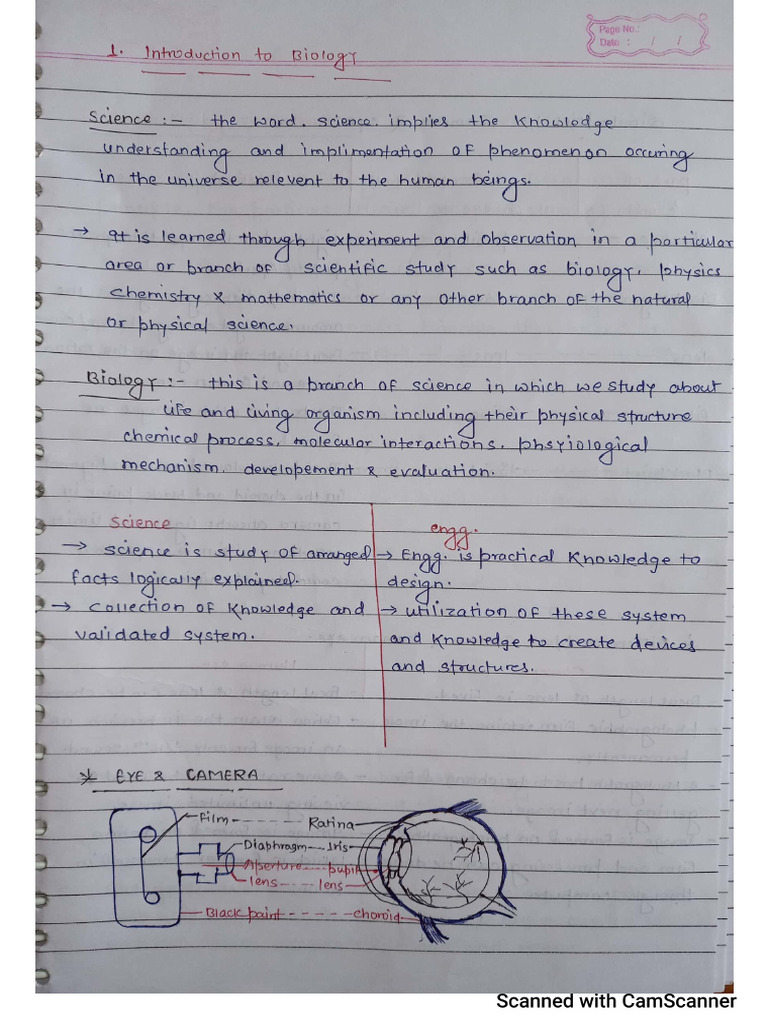 Page No.:
Date : / /
1. Introduction to Biology
Science :- the word. science. implies the knowledge
understanding and implimentation of phenomenon occuring
in the universe relevent to the human beings.
→ It is learned through experiment and observation in a particular
area or branch of scientific study such as biology, physics
chemistry & mathematics or any other branch of the natural
or physical science.
Biology :- this is a branch of science in which we study about
life and living organism including their physical structure
chemical process, molecular interactions, phsyiological
mechanism, developement & evaluation.
Science
→ science is study of arranged
facts logically explained.
→ collection of knowledge and
validated system.
engg.
→ Engg. is practical knowledge to
design.
→ utilization of these system
and knowledge to create devices
and structures.
* EYE & CAMERA
Film - - - - - - Ratina
Diaphragm - - - Iris
Aperture - - - pupil
lens - - - - lens
Black paint - - - - - choroid
Scanned with CamScanner